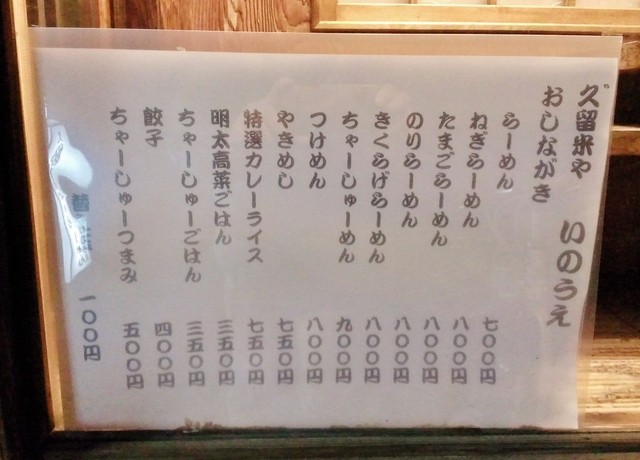 久留米や いのうえ
おしながき
らーめん 七〇〇円
ねぎらーめん 八〇〇円
たまごらーめん 八〇〇円
のりらーめん 八〇〇円
きくらげらーめん 八〇〇円
ちゃーしゅーめん 九〇〇円
つけめん 八〇〇円
やきめし 七五〇円
特選カレーライス 七五〇円
明太高菜ごはん 三五〇円
ちゃーしゅーごはん 三五〇円
餃子 四〇〇円
ちゃーしゅーつまみ 五〇〇円
一〇〇円